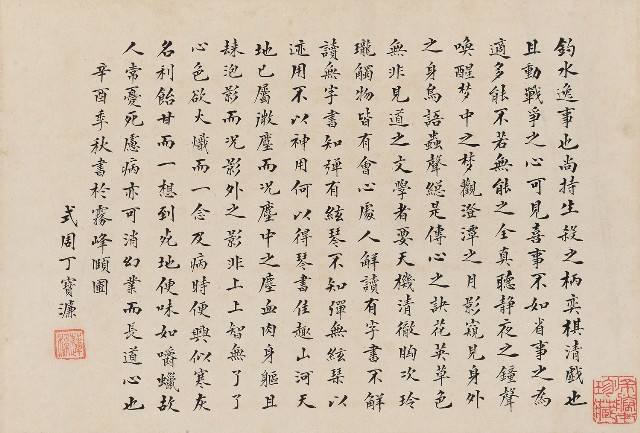 釣水逸事也尚持生殺之柄奕棋清戲也
且動戰爭之心可見喜事不如省事之為
適多能不若無能之全真聽静夜之鐘聲
喚醒梦中之梦觀澄潭之月影窺見身外
之身鳥語蟲聲總是傳心之訣花英草色
無非見道之文學者要天機清徹胸次玲
瓏觸物皆有會心處人解讀有字書不解
讀無字書知彈有絃琴不知彈無絃琴以
迹用不以神用何以得琴書佳趣山河天
地已屬微塵而況塵中之塵血肉身軀且
歸泡影而况影外之影非上上智無了了
心色欲火熾而一念及病時便興似寒灰
名利飴甘而一想到死地便味如嚼蠟故
人常憂死慮病亦可消幻業而長道心也
辛酉季秋書於霧峰頤圃
式周丁寶濂